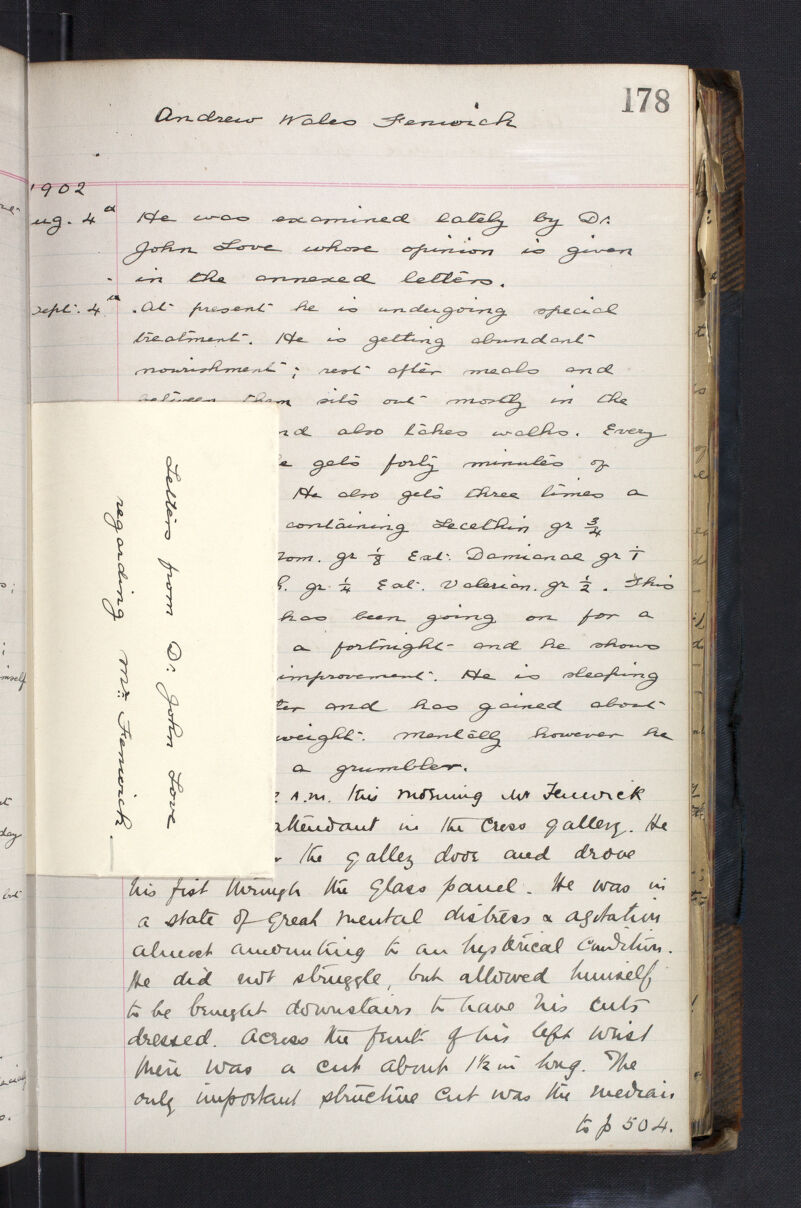 178
Andrew Wales Fenwick
1902
ug. 4th He was examined lately by Dr.
John Love whose opinion is given
in the annexed letters.
Sept. 4th At present he is undergoing special
treatment. He is getting abundant
nourishment; rest after meals and
between them sits out mostly in the
nd also takes walks. Every
e gets forty minutes of
He also gets three times a
containing Lecethin gr 3/4
gr 1/8 Ext. Damianae gr
gr 1/4 Ext. Valerian. gr 1/2. This
has been going on for a
a fortnight and he shows
improvement. He is sleeping
ter and has gained about
weight. Mentally however he
a grumbler.
a.m. this morning Mr Fenwick
attendant in the Cross gallery. He
the gallery door and drove
his fist through the glass panel. He was in
a state of great mental distress & agitation
almost amounting to an hysterical condition.
He did not struggle, but allowed himself
to be brought downstairs to have his cuts
dressed. Across the front of his left wrist
there was a cut about 1½ in long. The
only important structure cut was the median
to p 504.
Letters from Dr. John Love
regarding Mr. Fenwick.